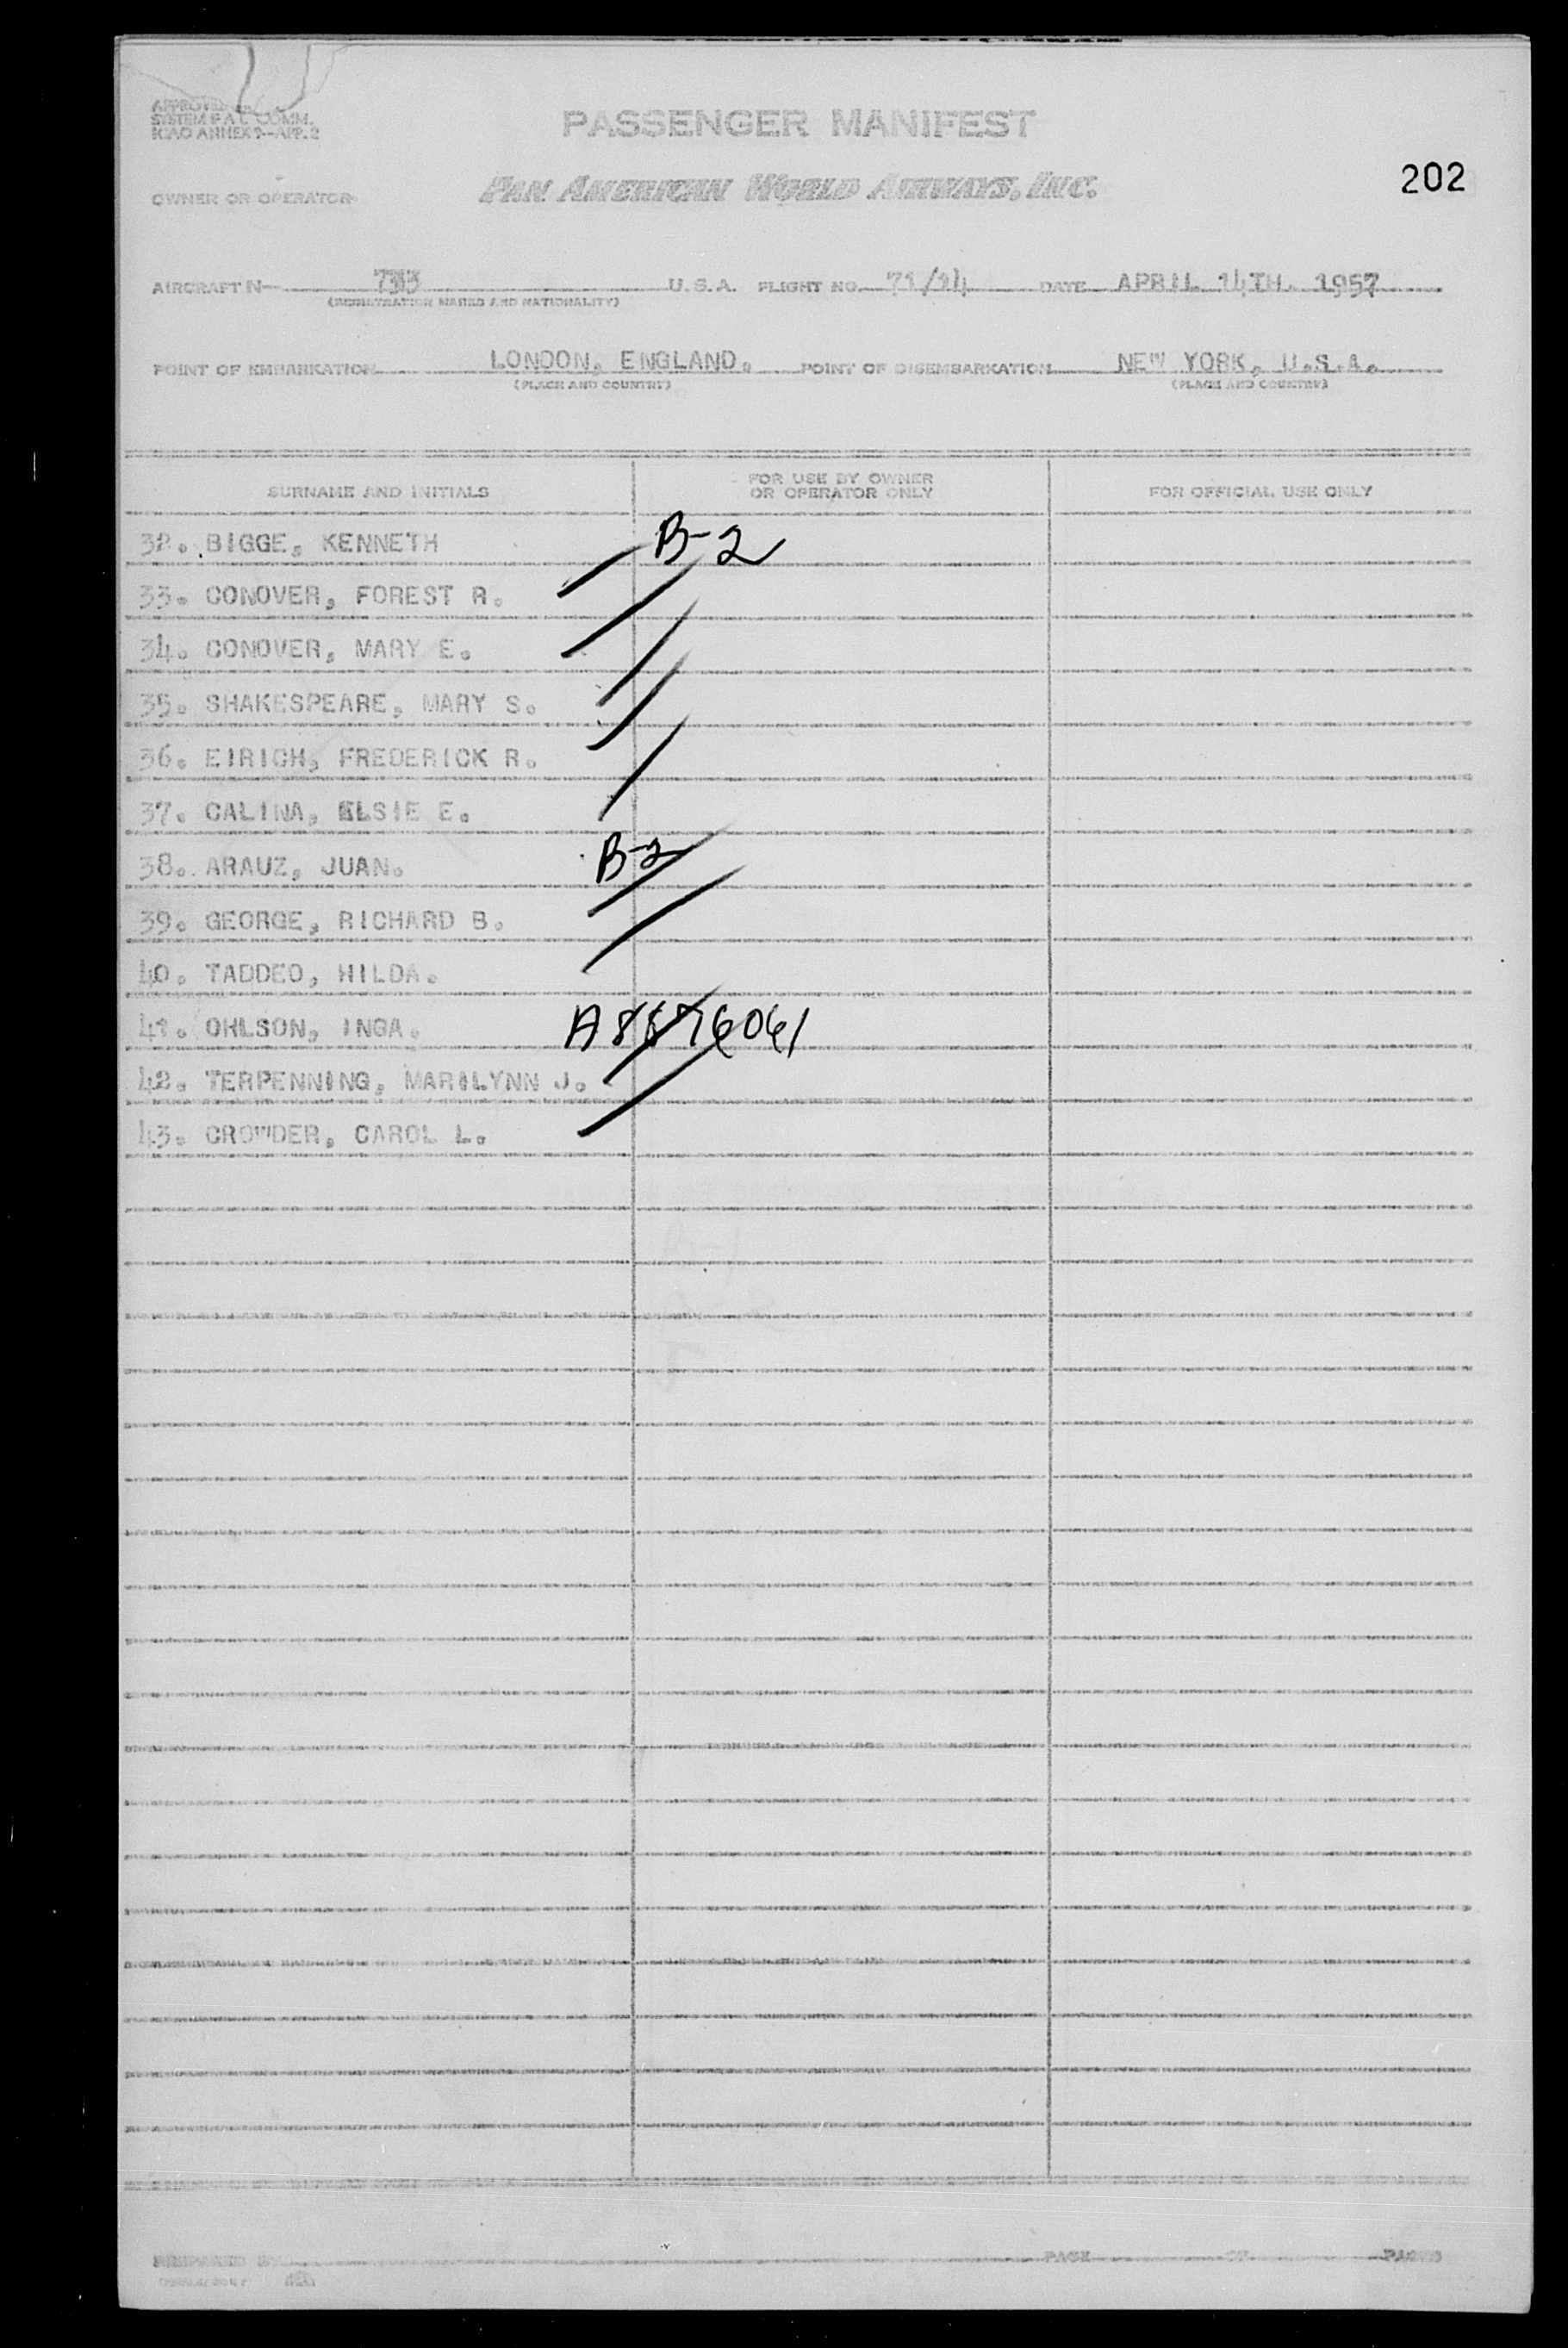 APPROVED BY
SYSTEM F.A.L. COMM.
ICAO ANNEX 9—APP. 2
PASSENGER MANIFEST
202
OWNER OR OPERATOR
PAN AMERICAN WORLD AIRWAYS, INC.
AIRCRAFT N 733 U.S.A. FLIGHT NO. 71/14 DATE APRIL 14TH. 1957
(REGISTRATION MARKS AND NATIONALITY)
POINT OF EMBARKATION LONDON, ENGLAND. POINT OF DISEMBARKATION NEW YORK, U.S.A.
(PLACE AND COUNTRY) (PLACE AND COUNTRY)
SURNAME AND INITIALS FOR USE BY OWNER OR OPERATOR ONLY FOR OFFICIAL USE ONLY
32. BIGGE, KENNETH B-2
33. CONOVER, FOREST R.
34. CONOVER, MARY E.
35. SHAKESPEARE, MARY S.
36. EIRICH, FREDERICK R.
37. CALINA, ELSIE E.
38. ARAUZ, JUAN. B-2
39. GEORGE, RICHARD B.
40. TADDEO, HILDA.
41. OHLSON, INGA.
42. TERPENNING, MARILYNN J.
43. CROWDER, CAROL L.
PREPARED BY PAGE OF PAGES